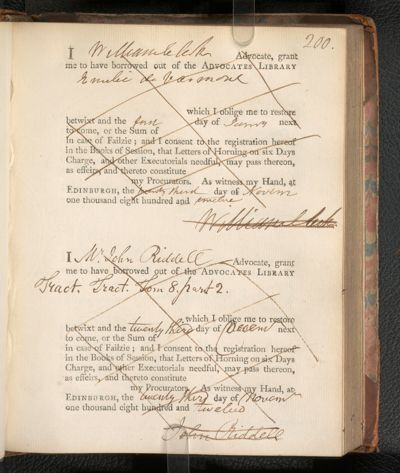 200.
I William Clerk Advocate, grant
me to have borrowed out of the ADVOCATES LIBRARY
Emilie de Varmont
which I oblige me to restore
betwixt and the first day of Janry next
to come, or the Sum of
in case of Failzie; and I consent to the registration hereof
in the Books of Session, that Letters of Horning on six Days
Charge, and other Executorials needful, may pass thereon,
as effeirs, and thereto constitute
my Procurators. As witness my Hand, at
EDINBURGH, the twenty third day of Novem
one thousand eight hundred and twelve
William Clerk
I Mr. John Riddell Advocate, grant
me to have borrowed out of the ADVOCATES LIBRARY
Tract. Tract. Tom 8. part 2.
which I oblige me to restore
betwixt and the twenty third day of Decem next
to come, or the Sum of
in case of Failzie; and I consent to the registration hereof
in the Books of Session, that Letters of Horning on six Days
Charge, and other Executorials needful, may pass thereon,
as effeirs, and thereto constitute
my Procurators. As witness my Hand, at
EDINBURGH, the twenty third day of Novem
one thousand eight hundred and twelve
John Riddell